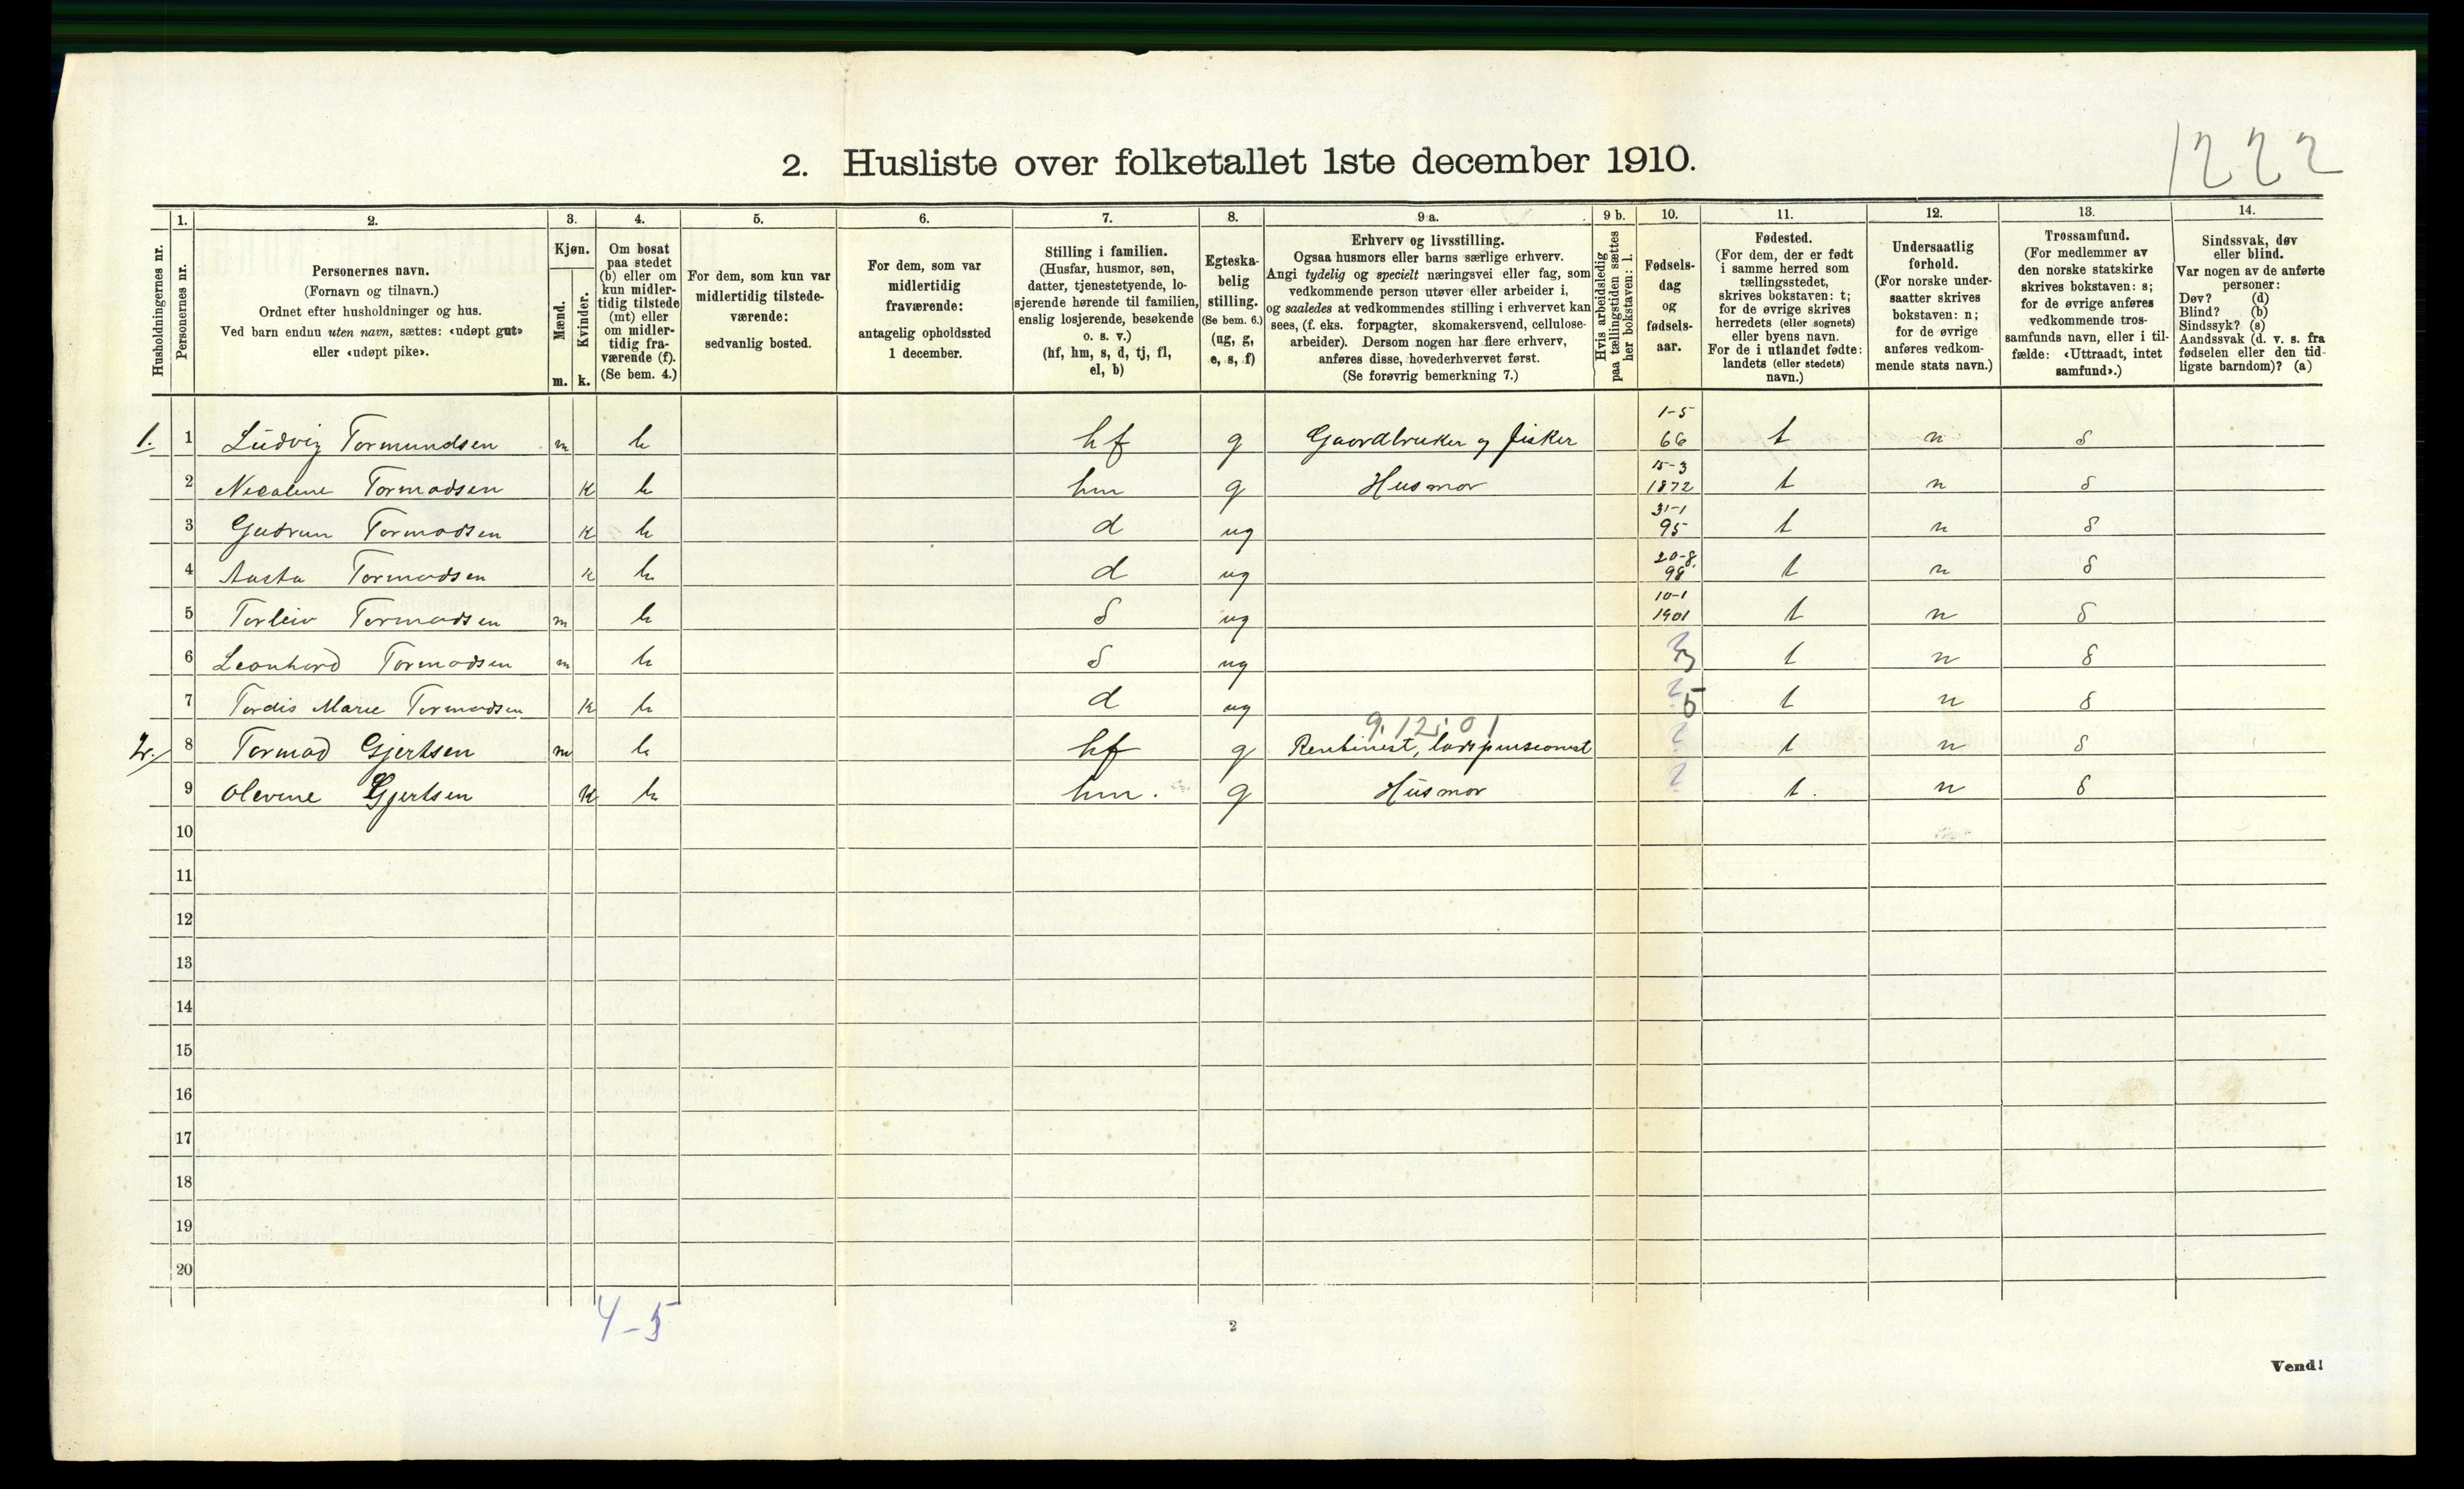 1222
2. Husliste over folketallet 1ste december 1910.
Husholdningernes nr.
1.
Personernes nr.
2.
Personernes navn.
(Fornavn og tilnavn.)
Ordnet efter husholdninger og hus.
Ved barn endnu uten navn, sættes: «udøpt gut»
eller «udøpt pike».
3.
Kjøn.
Mænd.
Kvinder.
m. k.
4.
Om bosat
paa stedet
(b) eller om
kun midler-
tidig tilstede
(mt) eller
om midler-
tidig fra-
værende (f).
(Se bem. 4.)
5.
For dem, som kun var
midlertidig tilstede-
værende:
sedvanlig bosted.
6.
For dem, som var
midlertidig
fraværende:
antagelig opholdssted
1 december.
7.
Stilling i familien.
(Husfar, husmor, søn,
datter, tjenestetyende, lo-
sjerende hørende til familien,
enslig losjerende, besøkende
o. s. v.)
(hf, hm, s, d, tj, fl,
el, b)
8.
Egteska-
belig
stilling.
(Se bem. 6.)
(ug, g,
e, s, f)
9 a.
Erhverv og livsstilling.
Ogsaa husmors eller barns særlige erhverv.
Angi tydelig og specielt næringsvei eller fag, som
vedkommende person utøver eller arbeider i,
og saaledes at vedkommendes stilling i erhvervet kan
sees, (f. eks. forpagter, skomakersvend, cellulose-
arbeider). Dersom nogen har flere erhverv,
anføres disse, hovederhvervet først.
(Se forøvrig bemerkning 7.)
9 b.
Hvis arbeidsledig
paa tællingstiden sættes
her bokstaven: l.
10.
Fødsels-
dag
og
fødsels-
aar.
11.
Fødested.
(For dem, der er født
i samme herred som
tællingsstedet,
skrives bokstaven: t;
for de øvrige skrives
herredets (eller sognets)
eller byens navn.
For de i utlandet fødte:
landets (eller stedets)
navn.)
12.
Undersaatlig
forhold.
(For norske under-
saatter skrives
bokstaven: n;
for de øvrige
anføres vedkom-
mende stats navn.)
13.
Trossamfund.
(For medlemmer av
den norske statskirke
skrives bokstaven: s;
for de øvrige anføres
vedkommende tros-
samfunds navn, eller i til-
fælde: «Uttraadt, intet
samfund».)
14.
Sindssvak, døv
eller blind.
Var nogen av de anførte
personer:
Døv? (d)
Blind? (b)
Sindssyk? (s)
Aandssvak (d. v. s. fra
fødselen eller den tid-
ligste barndom)? (a)
1. 1 Ludvig Tormundsen m b hf g Gaardbruker og fisker 1-5 66 t n s
2 Nicoline Tormodsen k b hm g Husmor 15-3 1872 t n s
3 Gudrun Tormodsen k b d ug 31-1 95 t n s
4 Aasta Tormodsen k b d ug 20-8. 98 t n s
5 Torleiv Tormodsen m b s ug 10-1 1901 t n s
6 Leonhard Tormodsen m b s ug 3 t n s
7 Tordis Marie Tormodsen k b d ug ? 5 t n s
9.12.01
2. 8 Tormod Gjertsen m b hf g Rentinest, lospensionist ? t n s
9 Olevine Gjertsen k b hm. g Husmor ? t. n s
10
11
12
13
14
15
16
17
18
19
20
4-5
2
Vend!